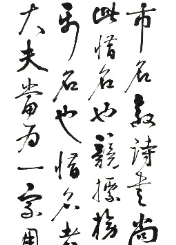 市名敦詩書尚
此惜名也競標榜
市名也惜名者
大夫當為一家用